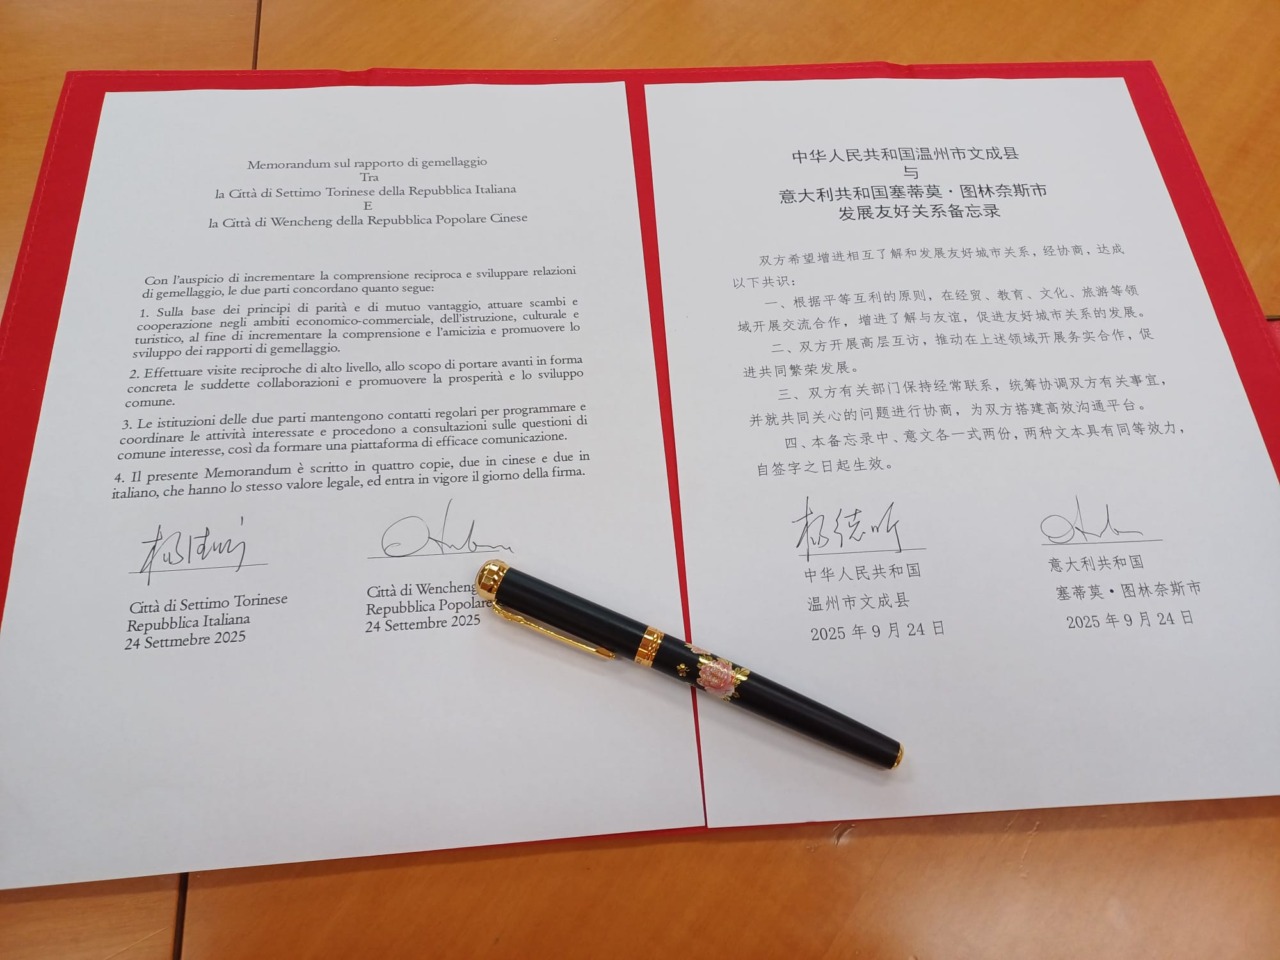 Memorandum sul rapporto di gemellaggio
Tra
la Città di Settimo Torinese della Repubblica Italiana
E
la Città di Wencheng della Repubblica Popolare Cinese
Con l'auspicio di incrementare la comprensione reciproca e sviluppare relazioni
di gemellaggio, le due parti concordano quanto segue:
1. Sulla base dei principi di parità e di mutuo vantaggio, attuare scambi e
cooperazione negli ambiti economico-commerciale, dell'istruzione, culturale e
turistico, al fine di incrementare la comprensione e l'amicizia e promuovere lo
sviluppo dei rapporti di gemellaggio.
2. Effettuare visite reciproche di alto livello, allo scopo di portare avanti in forma
concreta le suddette collaborazioni e promuovere la prosperità e lo sviluppo
comune.
3. Le istituzioni delle due parti mantengono contatti regolari per programmare e
coordinare le attività interessate e procedono a consultazioni sulle questioni di
comune interesse, così da formare una piattaforma di efficace comunicazione.
4. Il presente Memorandum è scritto in quattro copie, due in cinese e due in
italiano, che hanno lo stesso valore legale, ed entra in vigore il giorno della firma.
Città di Settimo Torinese
Repubblica Italiana
24 Settmebre 2025
Città di Wencheng
Repubblica Popolare
24 Settembre 2025
中华人民共和国温州市文成县
与
意大利共和国塞蒂莫·图林奈斯市
发展友好关系备忘录
双方希望增进相互了解和发展友好城市关系，经协商，达成
以下共识：
一、根据平等互利的原则，在经贸、教育、文化、旅游等领
域开展交流合作，增进了解与友谊，促进友好城市关系的发展。
二、双方开展高层互访，推动在上述领域开展务实合作，促
进共同繁荣发展。
三、双方有关部门保持经常联系，统筹协调双方有关事宜，
并就共同关心的问题进行协商，为双方搭建高效沟通平台。
四、本备忘录中、意文各一式两份，两种文本具有同等效力，
自签字之日起生效。
中华人民共和国
温州市文成县
2025 年 9 月 24 日
意大利共和国
塞蒂莫·图林奈斯市
2025 年 9 月 24 日